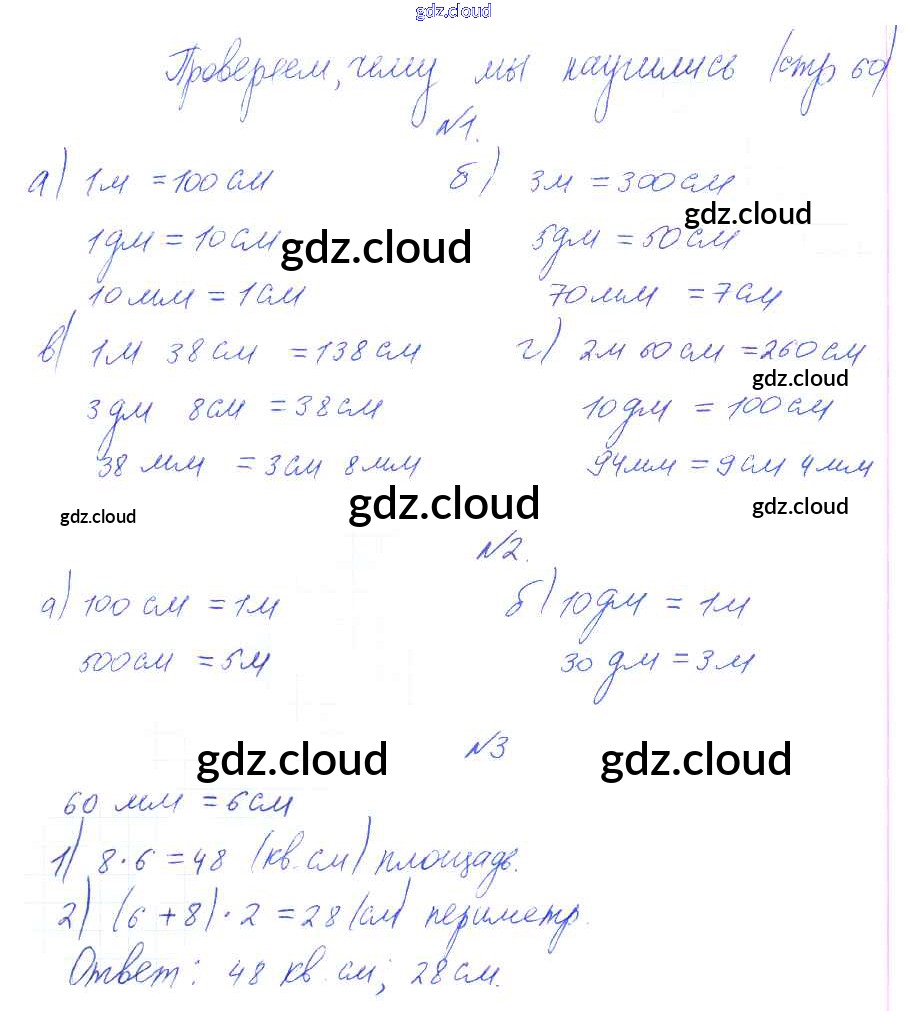 gdz.cloud
Проверяем, чему мы научились (стр 60)
№1.
а) 1м = 100 см б) 3м = 300 см
gdz.cloud
1дм = 10 см 5дм = 50 см
gdz.cloud
10 мм = 1 см 70 мм = 7 см
в) 1м 38 см = 138 см г) 2м 60 см = 260 см
gdz.cloud
3 дм 8см = 38 см 10 дм = 100 см
38 мм = 3 см 8 мм 94 мм = 9 см 4 мм
gdz.cloud gdz.cloud gdz.cloud
№2.
а) 100 см = 1м б) 10 дм = 1м
500 см = 5м 30 дм = 3 м
№3
gdz.cloud gdz.cloud
60 мм = 6 см
1) 8 · 6 = 48 (кв. см) площадь.
2) (6 + 8) · 2 = 28 (см) периметр.
Ответ: 48 кв. см; 28 см.